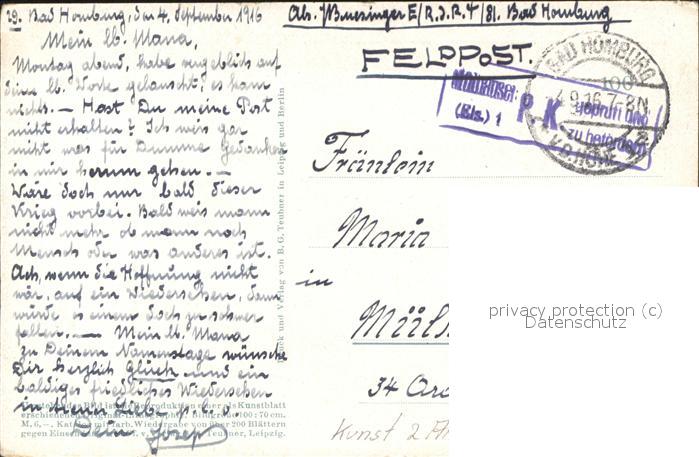 19. Bad Homburg, den 4. September 1916
Mein lb. Mana,
Montag abend, habe vergeblich auf
deine lb. Worte gelauscht, es kam
nichts. — Hast Du meine Post
nicht erhalten? Ich weis gar
nicht was für Dumme Gedanken
in mir herum gehen. —
Wäre doch nur bald dieser
Krieg vorbei. Bald weis mann
nicht mehr ob mann noch
Mensch oder was anderes ist.
Ach, wenn die Hoffnung nicht
wär, auf ein Wiedersehen, dann
würde es einem doch zu schwer
fallen. — Mein lb. Mana
zu Deinem Namenstage wünsche
Dir herzlich Glück und ein
baldiges friedliches Wiedersehen
in treuer Liebe
Dein Josep
Druck und Verlag von B. G. Teubner in Leipzig und Berlin
Bild ist Reproduktion einer als Kunstblatt
erschienenen Original-Lithographie. Bildgröße 100:70 cm.
M. 6,–. Katalog mit farb. Wiedergabe von über 200 Blättern
gegen Teubner, Leipzig.
Abs. E/R.I.R.T/81. Bad Homburg
FELDPOST.
BAD HOMBURG
4.9.16.7-8N
V.D. HÖHE
Mülhausen
(Els.) 1
P. K.
geprüft und
zu befördern
Fräulein
Maria
in
Mülh
34
Kunst 2
privacy protection (c)
Datenschutz